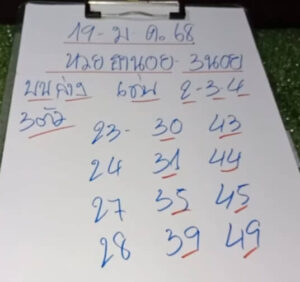 19-ม.ค.68
หวยฮานอย-3นอย
บนล่าง เด่น 2-3-4
3ตัว
23- 30 43
24 31 44
27 35 45
28 39 49